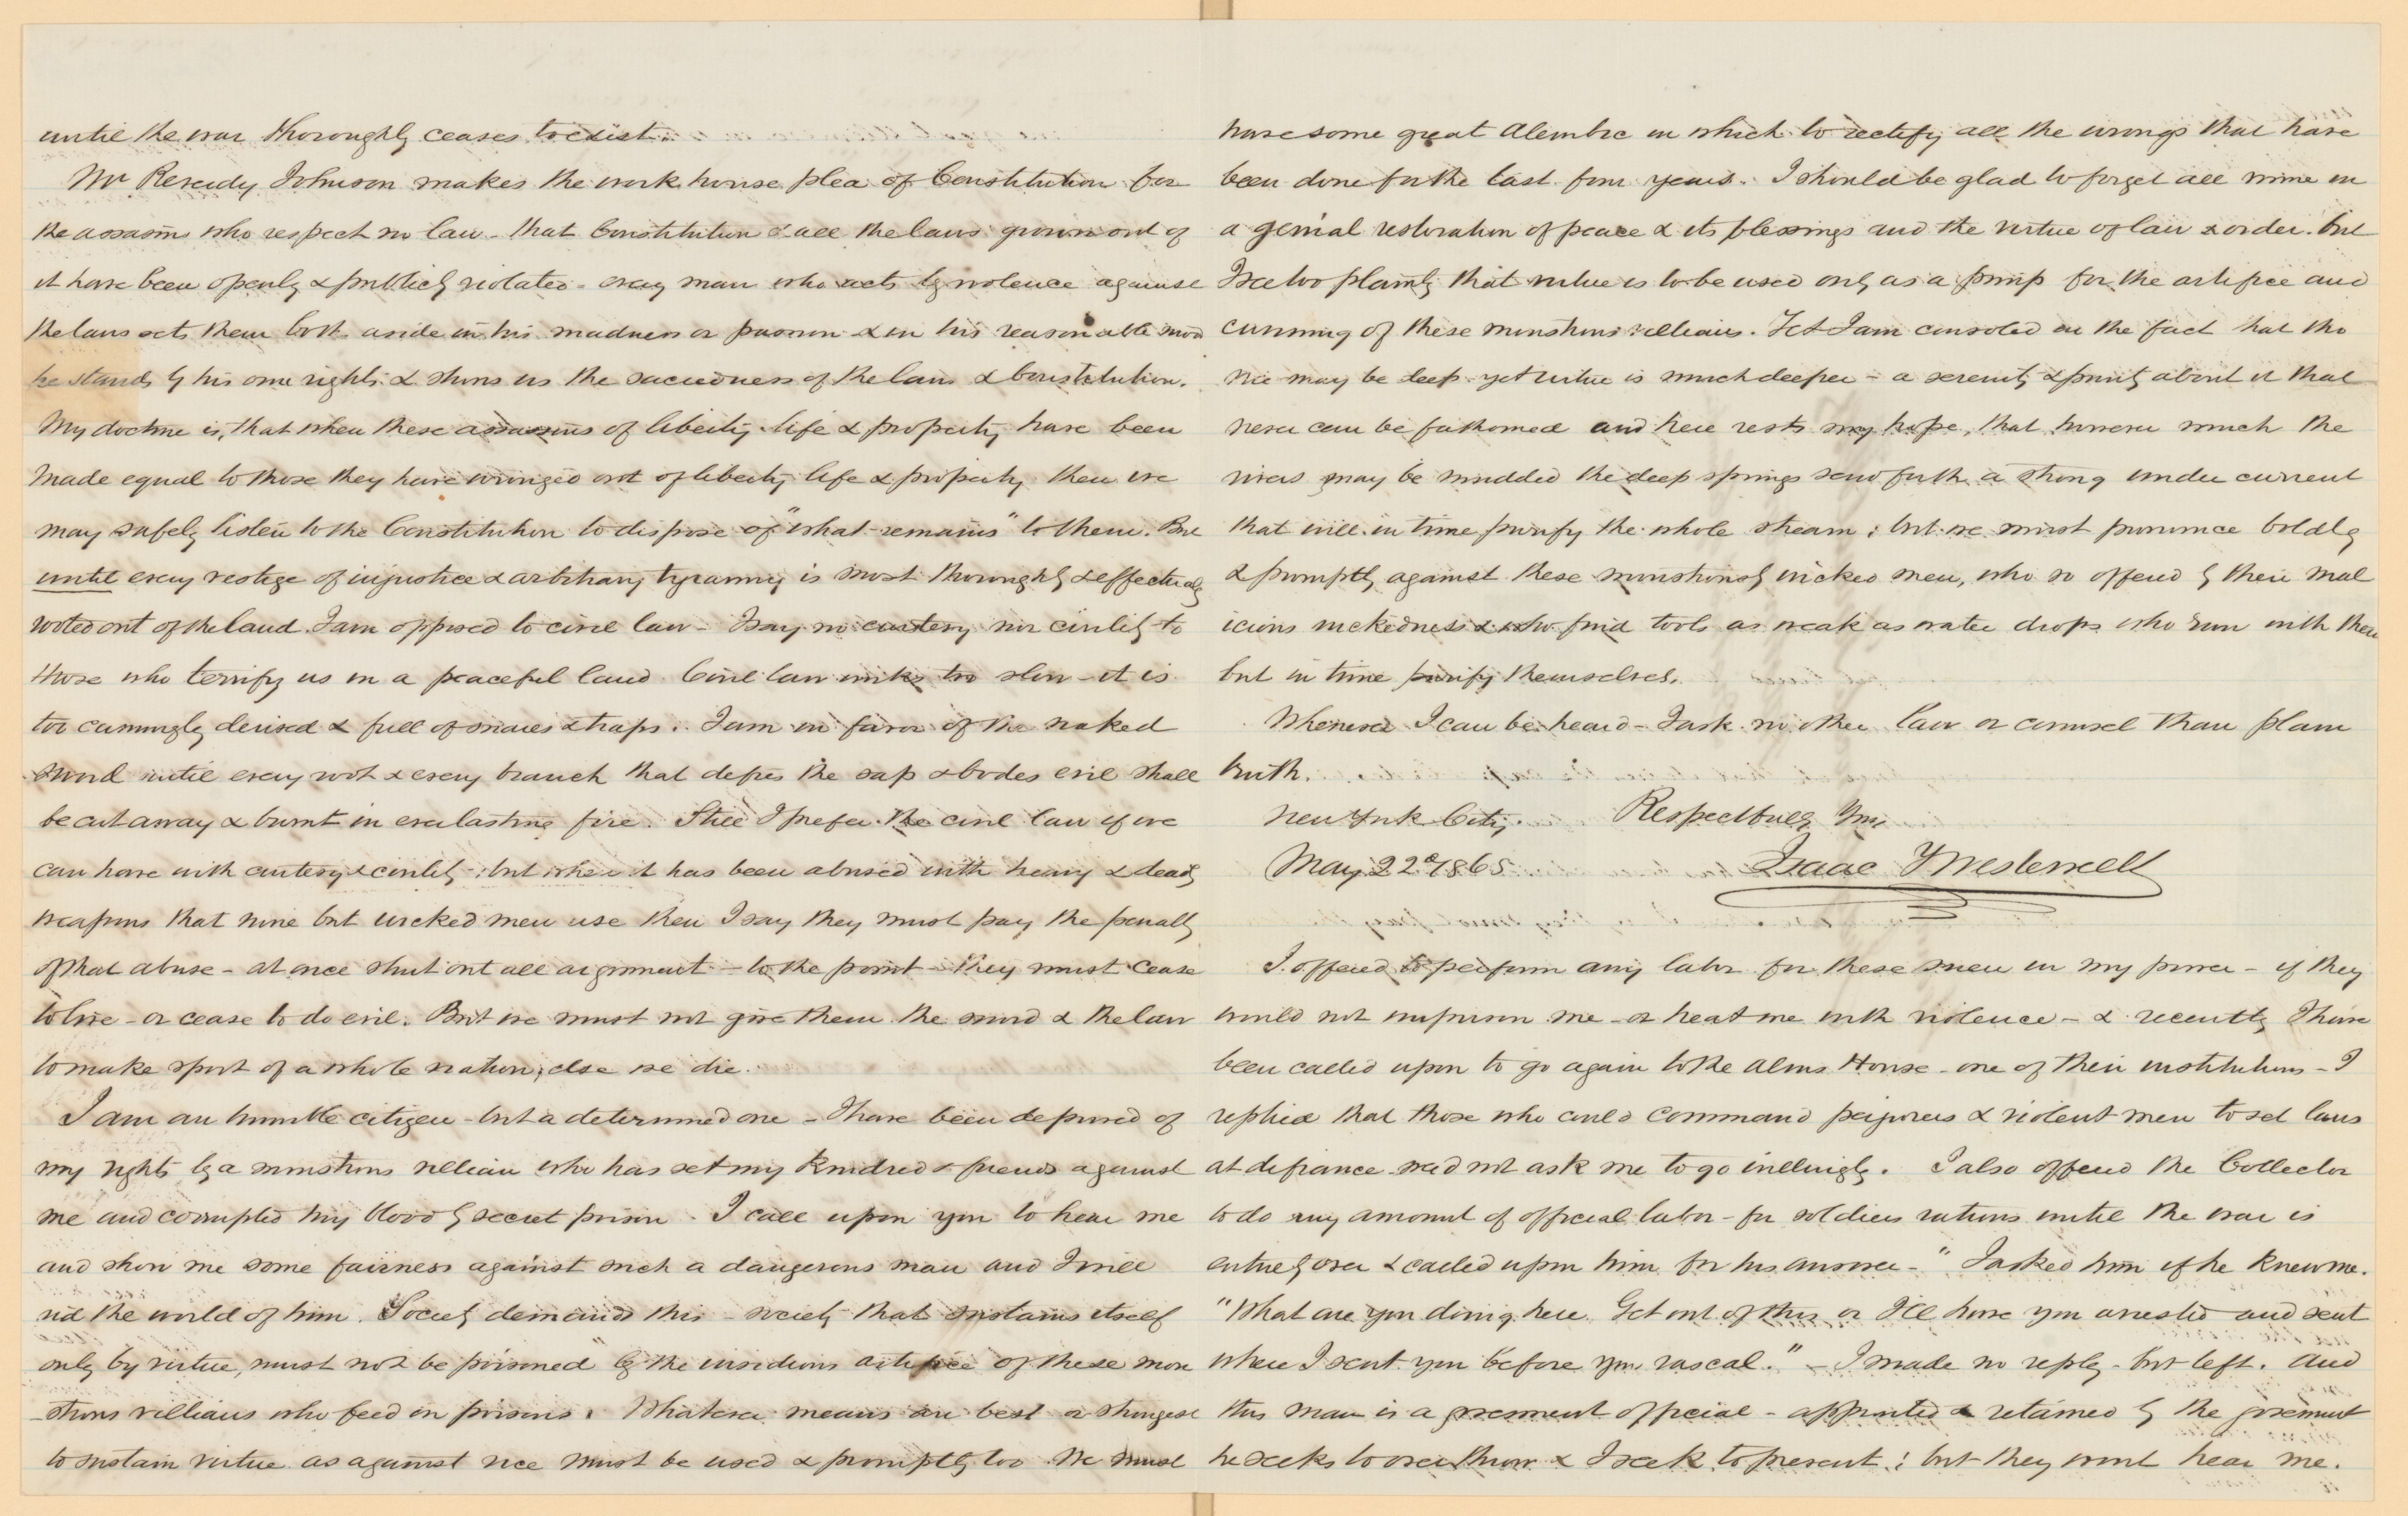 until the war thoroughly ceases to exist.
Mr Reverdy Johnson makes the work house plea of Constitution for
the assasins who respect no law - that Constitution & all the laws grown out of
it have been openly & publicly violated - every man who acts by violence against
the laws sets them both aside in his madness or passion & in his reasonable
he stands by his own rights & shows us the sacredness of the laws & Constitution.
My doctrine is, that when these assassins of liberty life & property have been
made equal to those they have wronged out of liberty life & property then we
may safely listen to the Constitution to dispose of "what remains" to them. But
until every vestige of injustice & arbitrary tyranny is most thoroughly & effectualy
rooted out of the land. I am opposed to civil law - I say no nor civility to
those who terrify us in a peaceful land. Civil law works too slow - it is
too cunningly devised & full of snares & traps. I am in favor of the naked
sword until every root & every branch that defies the sap & bodes evil shall
be cut away & burnt in everlasting fire. Still I prefer the civil law if we
can have with & civility - but when it has been abused with heavy & deadly
weapons that none but wicked men use then I say they must pay the penalty
of that abuse - at once shut out all argument - to the point - they must cease
to live - or cease to do evil. But we must not give them the sword & the law
to make sport of a whole nation, else we die.
I am an humble citizen - but a determined one - I have been deprived of
my rights by a monstrous villian who has set my kindred & friends against
me and corrupted my blood by secret poison. I call upon you to hear me
and show me some fairness against such a dangerous man and I will
rid the world of him. Society demands this - society that sustains itself
only by virtue, must not be poisoned by the insidious artifice of these mon
-strous villians who feed on poisons. Whatever means are best or strongest
to sustain virtue as against vice must be used & promptly too. We must
have some great Alembic in which to rectify all the wrongs that have
been done for the last four years. I should be glad to forget all mine in
a genial restoration of peace & its blessings and the virtue of law & order. but
I see too plainly that virtue is to be used only as a pimp for the artifice and
cunning of these monstrous villians. Yet I am consoled in the fact that tho
vice may be deep yet virtue is much deeper - a serenity & purity about it that
never can be fathomed and here rests my hope, that however much the
rivers may be muddied the deep springs send forth a strong under current
that will in time purify the whole stream; but we must pronounce boldly
& promptly against these monstrously wicked men, who so offend by their mal
icious wickedness & who find tools as weak as water drops who run with them
but in time purify themselves.
Whenever I can be heard - I ask no other law or counsel than plain
truth.
New York City. Respectfully Yrs,
May 22d 1865 Isaac Westervelt
I offered to perform any labor for these men in my power - if they
would not imprison me - or treat me with violence - & recently I have
been called upon to go again to the Alms House - one of their institutions - I
replied that those who could command perjurers & violent men to set laws
at defiance need not ask me to go willingly. I also offered the Collector
to do any amount of official labor - for soldiers rations until the war is
entirely over & called upon him for his answer - " I asked him if he knew me.
"What are you doing here. Get out of this or I'll have you arrested and sent
where I sent you before you rascal." - I made no reply - but left. And
this man is a government official - appointed & retained by the goverment
he seeks to over throw & I seek to prevent; but they wont hear me.